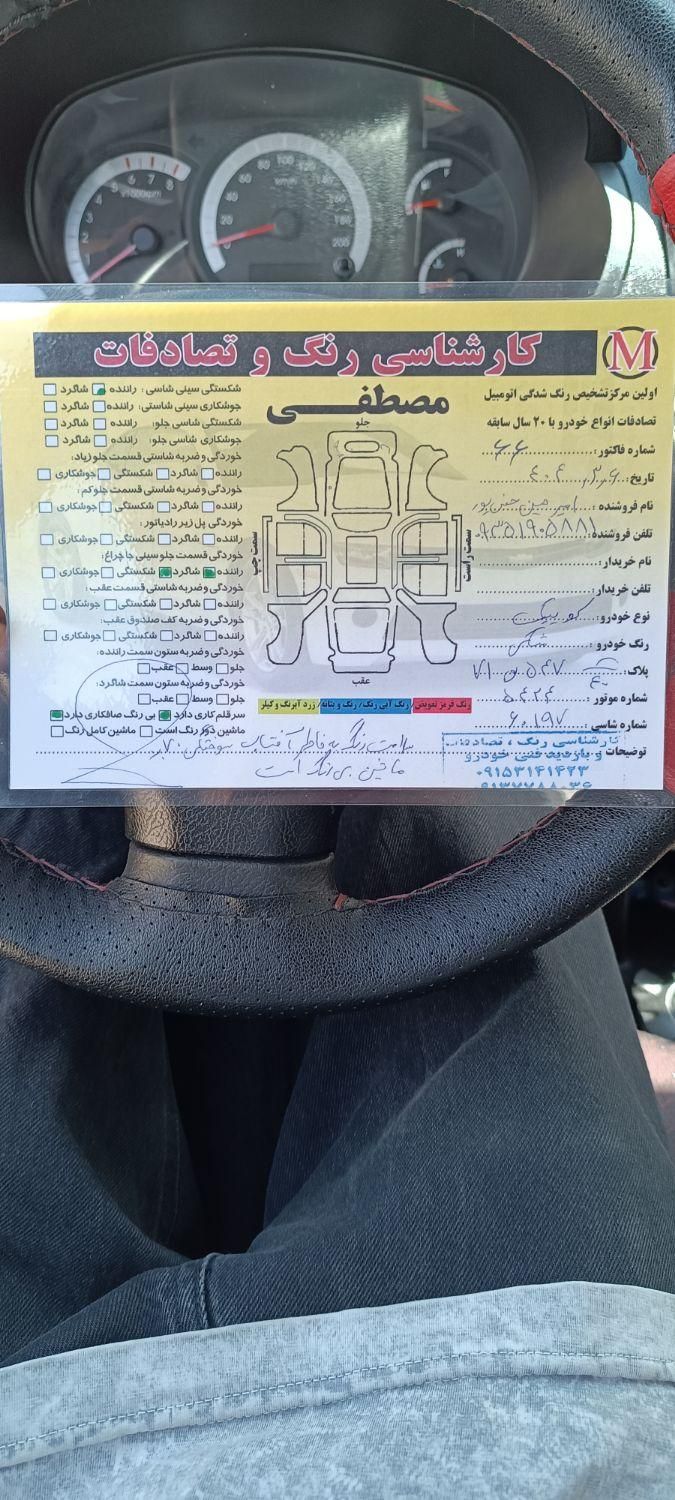 کارشناسی رنگ و تصادفات
M
مصطفی
اولین مرکز تشخیص رنگ شدگی اتومبیل
تصادفات انواع خودرو با ۲۰ سال سابقه
شماره فاکتور: ۶۶
تاریخ: ۴۰۴,۳,۶
نام فروشنده: امیر حسین حسن پور
تلفن فروشنده: ۰۹۳۵۱۹۰۵۸۸۱
نام خریدار:
تلفن خریدار:
نوع خودرو: کوییک
رنگ خودرو: مشکی
پلاک: ۷۱ ۵۴۷
شماره موتور: ۵۴۲۴
شماره شاسی: ۶۰۱۹۷
توضیحات: سلامت رنگ به خاطر آفتاب سوختگی
ماشین بی رنگ است
شکستگی سینی شاسی: راننده شاگرد
جوشکاری سینی شاسی: راننده شاگرد
شکستگی شاسی جلو: راننده شاگرد
جوشکاری شاسی جلو: راننده شاگرد
خوردگی و ضربه شاستی قسمت جلو زیاد:
راننده شاگرد شکستگی جوشکاری
خوردگی و ضربه شاستی قسمت جلو کم:
راننده شاگرد شکستگی جوشکاری
خوردگی پل زیر رادیاتور:
راننده شاگرد شکستگی جوشکاری
خوردگی قسمت جلو سینی جا چراغ:
راننده شاگرد شکستگی جوشکاری
خوردگی و ضربه شاستی قسمت عقب:
راننده شاگرد شکستگی جوشکاری
خوردگی و ضربه کف صندوق عقب:
راننده شاگرد شکستگی جوشکاری
خوردگی و ضربه ستون سمت راننده:
جلو وسط عقب
خوردگی و ضربه ستون سمت شاگرد:
جلو وسط عقب
سر قلم کاری دارد بی رنگ صافکاری دارد
ماشین دور رنگ است ماشین کامل رنگ
جلو
سمت چپ
سمت راست
عقب
رنگ قرمز تعویض/ رنگ آبی رنگ/ رنگ و بتانه/ زرد آبرنگ و گیلر
کارشناسی رنگ ، تصادفات
و بازدید فنی خودرو
۰۹۱۵۳۱۴۱۴۲۳
x1000rpm
1 2 3 4 5 6 7 8
km/h
0 20 40 60 80 100 120 140 160 180 200
F
H